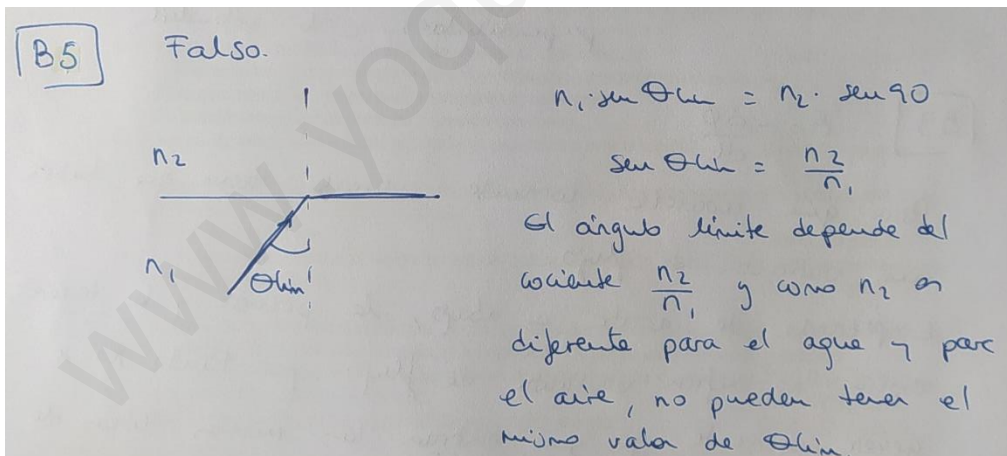 B5
Falso.
n₁·sen θlim = n₂· sen 90
n₂
sen θlim = n₂/n₁
El ángulo límite depende del
n₁
θlim
cociente n₂/n₁ y como n₂ es
diferente para el agua y para
el aire, no pueden tener el
mismo valor de θlim.
www.yoq